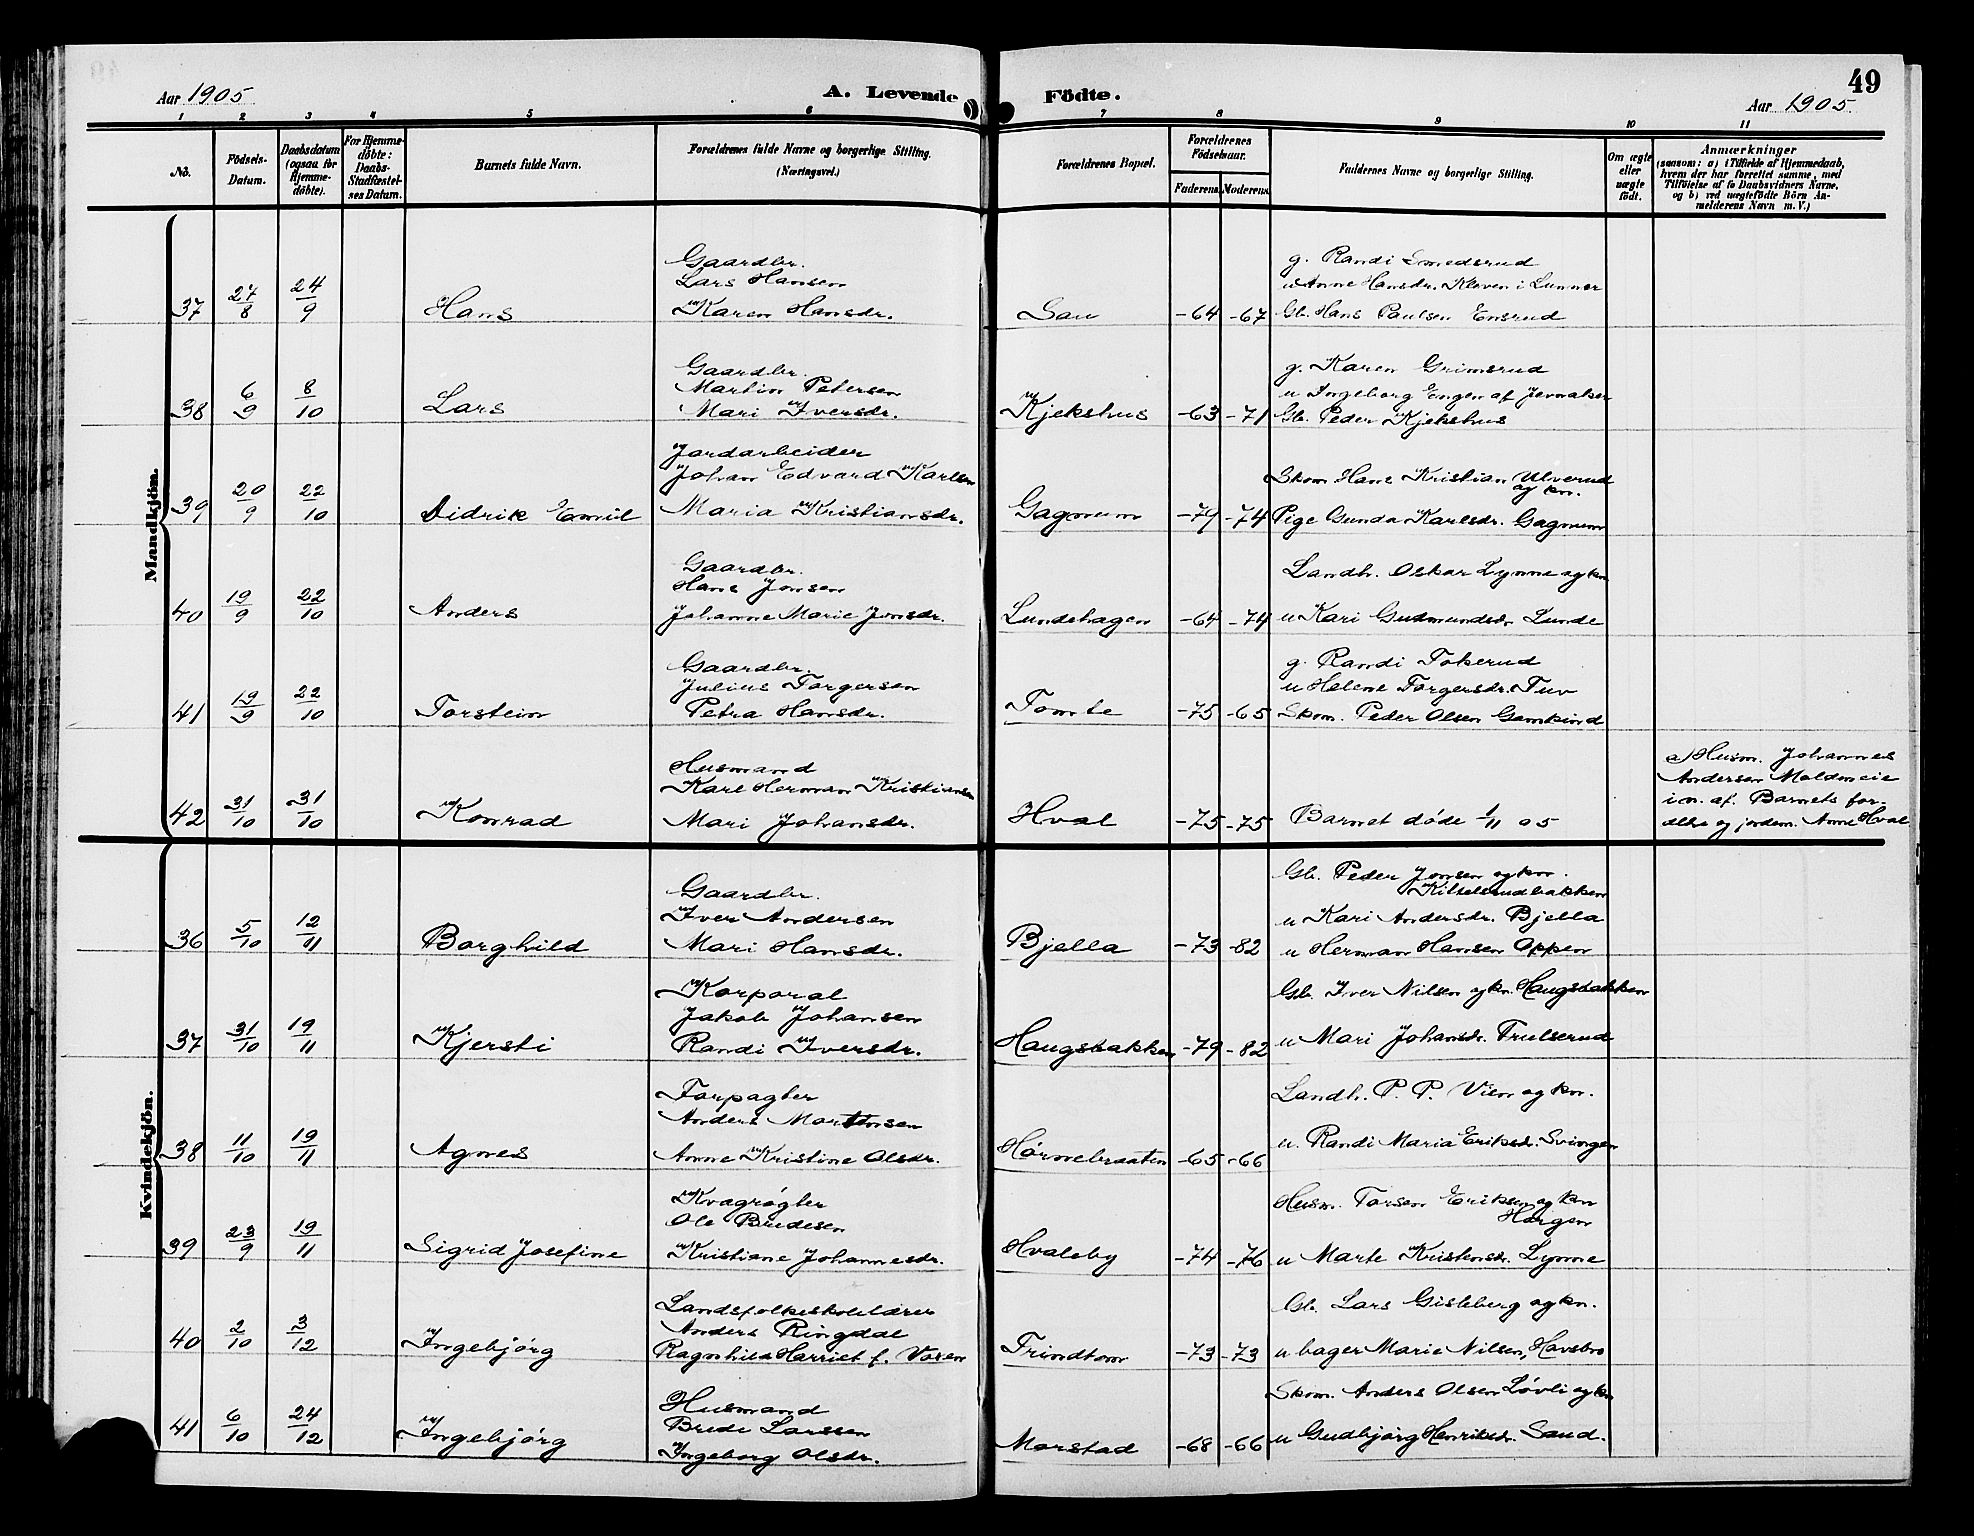 49
Aar 1905
A. Levende Födte.
Aar 1905.
1 2 3 4 5 6 7 8 9 10 11
No.
Födsels-Datum.
Daabsdatum (ogsaa for Hjemmedöbte).
For Hjemmedöbte: Daabs-Stadfæstelses Datum.
Barnets fulde Navn.
Forældrenes fulde Navne og borgerlige Stilling. (Næringsvei.)
Forældrenes Bopæl.
Forældrenes Födselsaar.
Faderens. Moderens.
Faddernes Navne og borgerlige Stilling.
Om ægte eller uægte födt.
Anmærkninger
(saasom: a) i Tilfælde af Hjemmedaab,
hvem der har forrettet samme, med
Tilföielse af to Daabsvidners Navne,
og b) ved uægtefödte Börn Anmelderens Navn m. V.)
Mandkjön.
Gaardbr.
Lars Hansen
37 27/8 24/9 Hans Karen Hansdr. Sau -64 -67
g. Randi Smedsrud
u Anne Hansdr. Kleven i Lunner
Gb. Hans Paulsen Ensrud
Gaardbr.
Martin Petersen
38 6/9 8/10 Lars Mari Iversdr. Kjekshus -63 -71
g. Karen Grimsrud
u Ingeborg Engen af Jevnaker
Gb. Peder Kjekshus
Jordarbeider
Johan Edvard Karlsen
39 20/9 22/10 Didrik Emil Maria Kristiansdr. Gagnum -79 -74
Skom. Hans Kristian Ulverud
og kn.
Pige Gunda Karlsdr. Gagnum
Gaardbr.
Hans Jonsen
40 19/9 22/10 Anders Johanne Marie Jonsdr. Lundehagen -64 -74
Landh. Oskar Lynne og kn
u Kari Gudmundsdr. Lunde
Gaardbr.
Julius Torgersen
41 19/9 22/10 Torstein Petra Hansdr. Tomte -75 -65
g. Randi Tokerud
u Helene Torgersdr. Tuv
Skom. Peder Olsen Gamkind
Husmand
Karl Herman Kristiansen
42 31/10 31/10 Konrad Mari Johansdr. Hval -75 -75 Barnet døde 1/11 05
a) Husm. Johannes
Andersen Moldmeie
i n. af. Barnets for-
ældre og jordem. Anne Hval
Kvindekjön.
Gaardbr.
Iver Andersen
36 5/10 12/11 Borghild Mari Hansdr. Bjella -73 -82
Gb. Peder Jonsen og kn.
Kittelsrudbakken
u Kari Andersdr. Bjella
u Herman Hansen Oppen
Korporal
Jakob Johansen
37 31/10 19/11 Kjersti Randi Iversdr. Haugsbakken -79 -82
Gb. Iver Nilsen og kn. Haugsbakken
u Mari Johansdr. Trulserud
Forpagter
Anders Mortensen
38 11/10 19/11 Agnes Anne Kristine Olsdr. Hørnebraaten -65 -66
Landh. P. P. Vien og kn.
u. Randi Maria Eriksdr. Svingen
Kvægrøgter
Ole Bredesen
39 23/9 19/11 Sigrid Josefine Kristiane Johannesdr. Hvaleby -74 -76
Husm. Torsen Eriksen og kn
Horgen
u Marte Kristensdr. Lynne
Landsfolkeskolelærer
Anders Ringdal
40 2/10 3/12 Ingebjørg Ragnhild Harriet f. Voren Trindtom -73 -73
Gb. Lars Gisleberg og kn.
u bager Marie Nilsen, Havsbro
Husmand
Brede Larssen
41 6/10 24/12 Ingebjørg Ingeborg Olsdr. Morstad -68 -66
Skom. Anders Olsen Løvli og kn
u Gudbjørg Henriksdr. Sand.